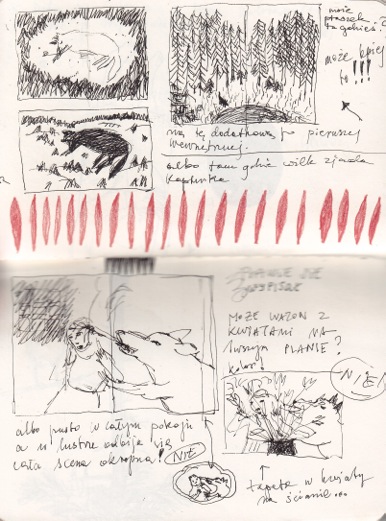 może
ptaszek
to gdzieś?
może lepiej
to !!!
na tę dodatkową po pierwszej
wewnętrznej.
albo tam gdzie wilk zjada
kapturka
MOŻE WAZON Z
KWIATAMI NA
PLANIE?
kolor!
NIE!
albo pusto w całym pokoju
a w lustrze odbija się
cała scena okropna!
NIE
tapeta w kwiaty
na ścianie...